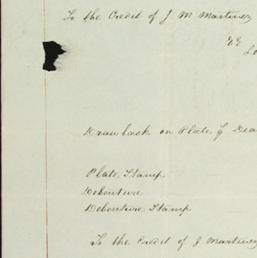 To the Credit of J. M. Martinez
Drawback on Plate &
Plate Stamp
Debenture
Debenture Stamp
To the Credit of J. Martinez